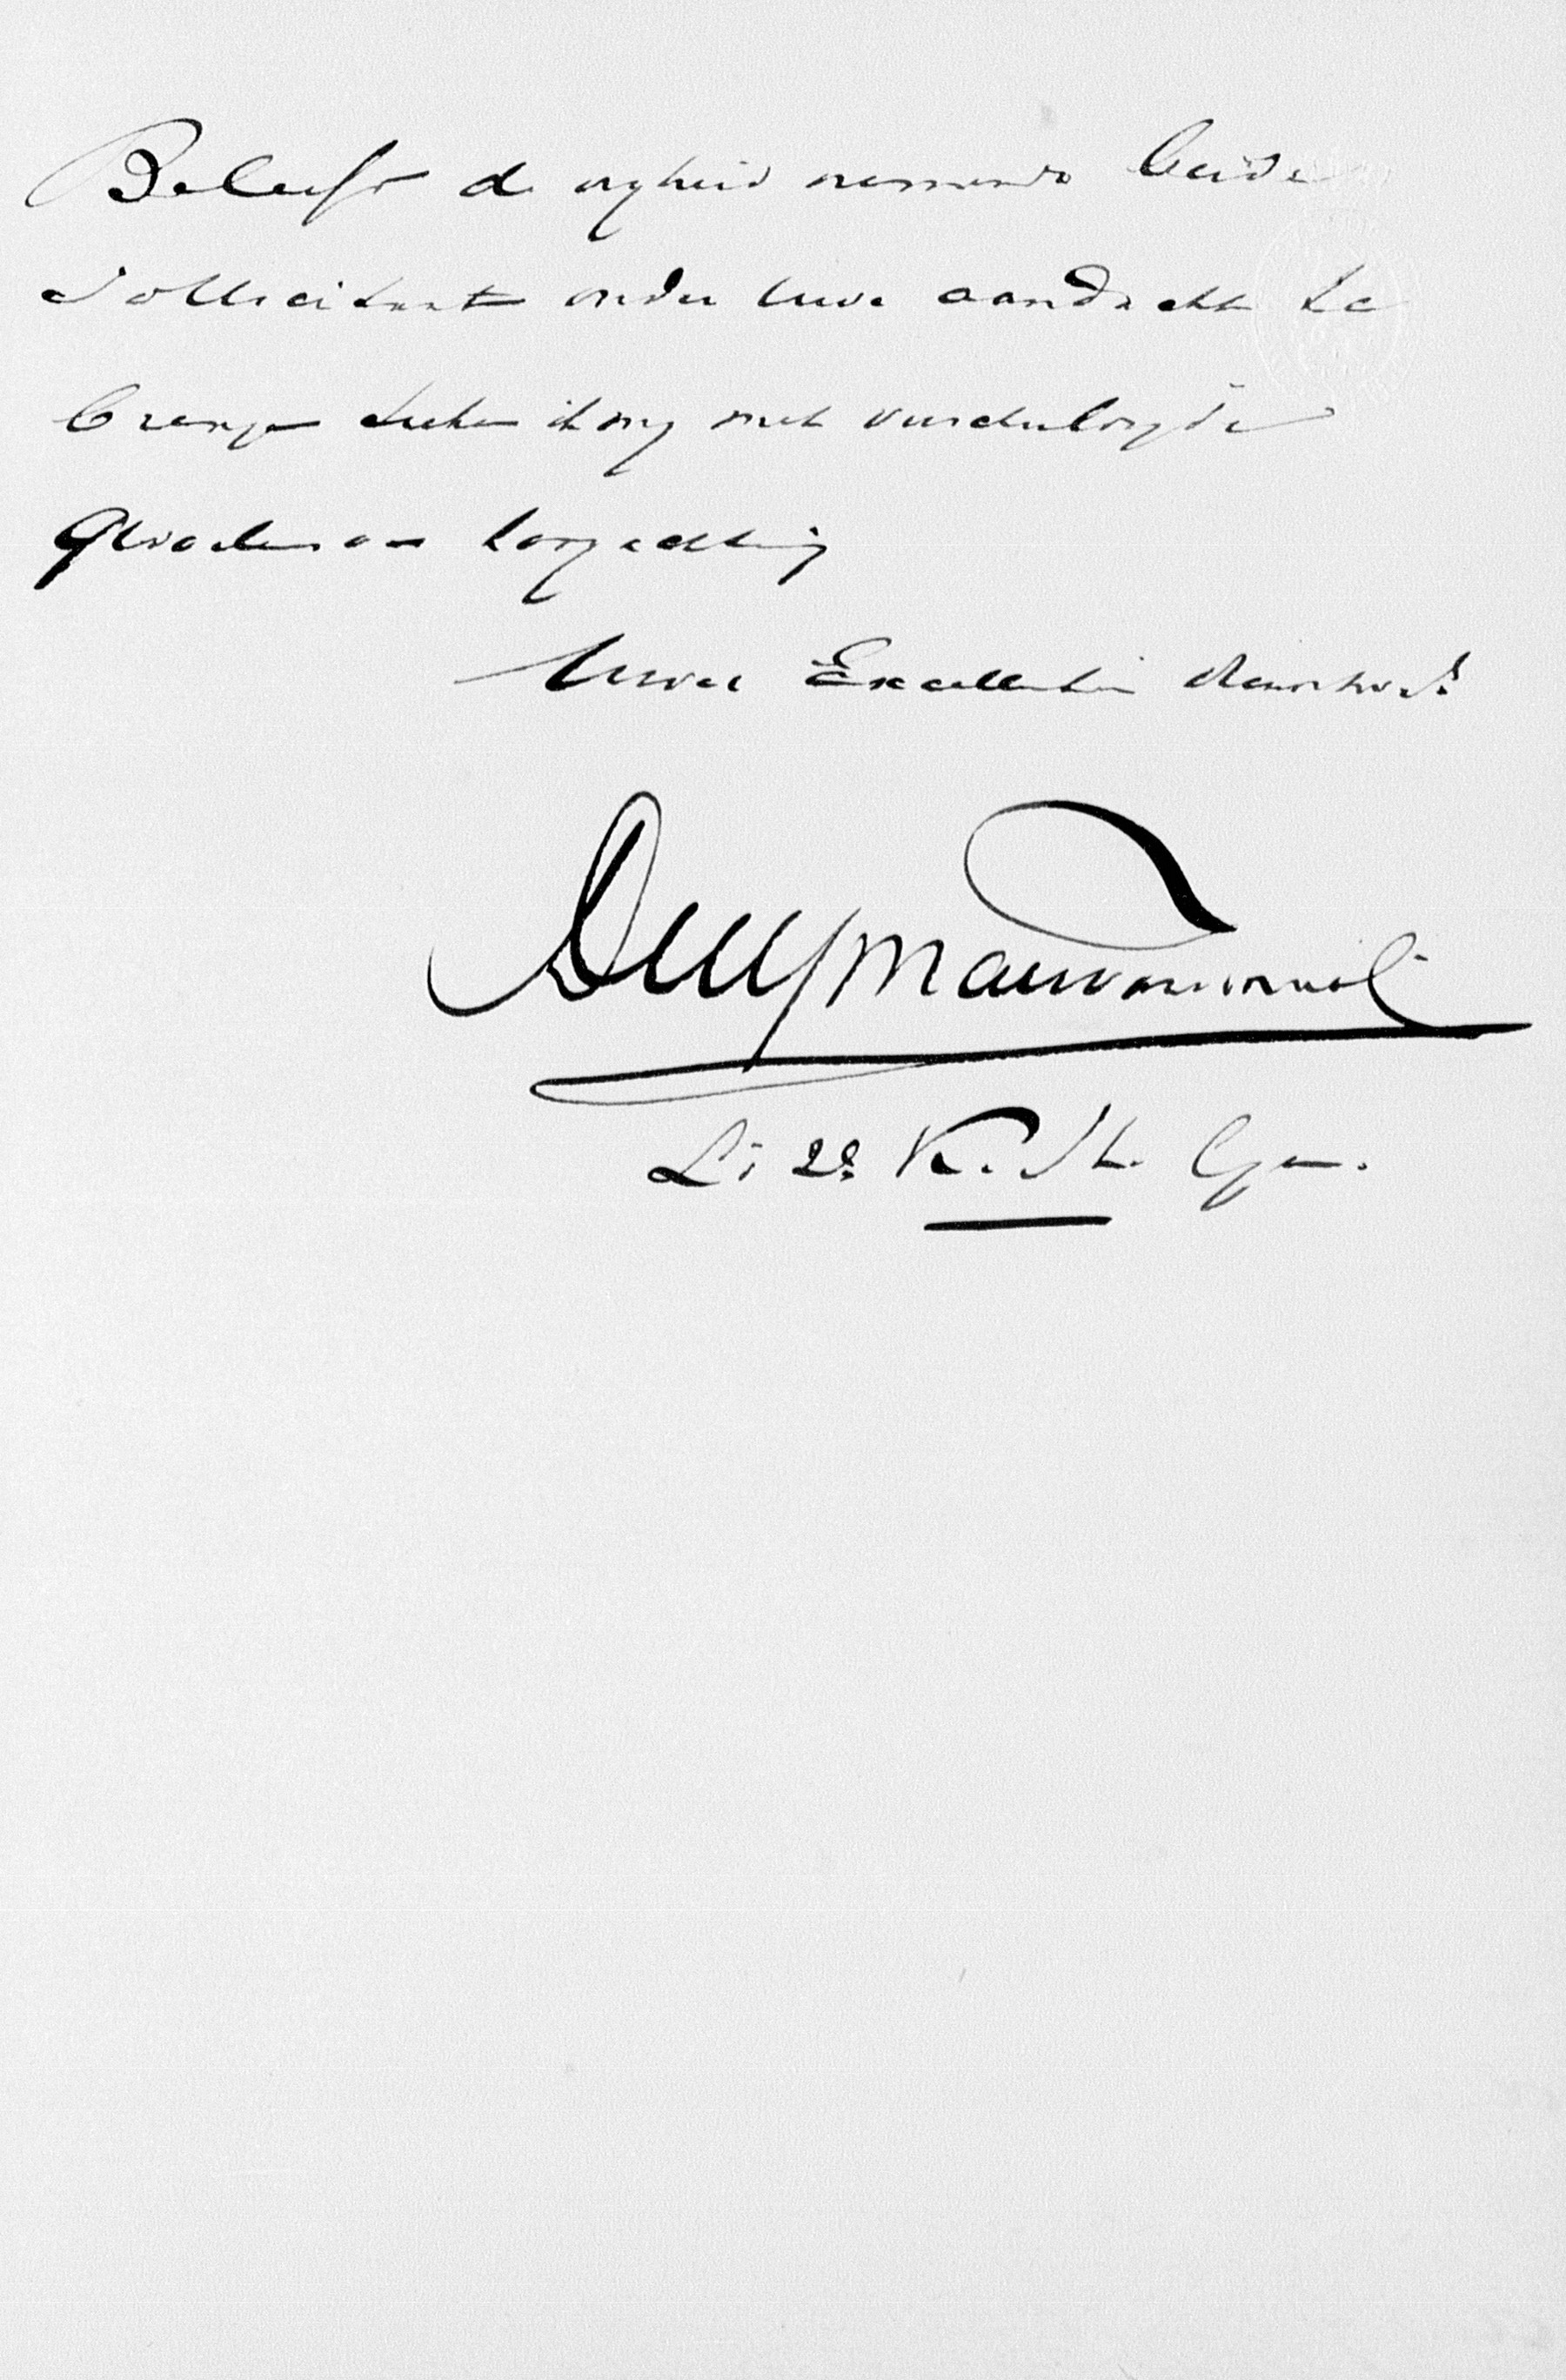 Beleeft de vrijheid nemende beide
Sollicitant onder Uwe aandacht te
brengen teeken ik mij met verschuldigde
hoogachting
Uwer Excellentie Dienstw. d.
Lt 2e K. St. Gen.